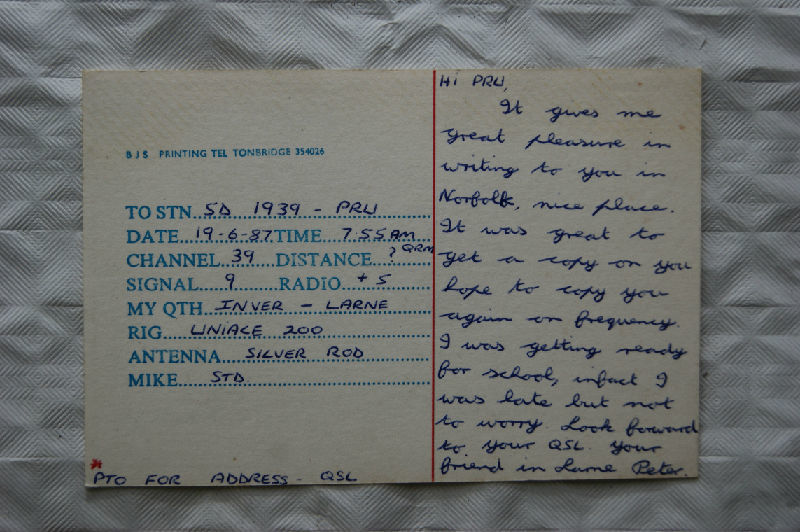 BJS PRINTING TEL TONBRIDGE 354026
TO STN...SD 1939 - PRU
DATE...19-6-87 TIME...7.55AM
CHANNEL...39 DISTANCE...? QRM
SIGNAL...9 RADIO...+5
MY QTH...INVER - LARNE
RIG...UNIACE 200
ANTENNA...SILVER ROD
MIKE...STD
* PTO FOR ADDRESS - QSL
Hi PRU,
It gives me
great pleasure in
writing to you in
Norfolk, nice place.
It was great to
get a copy on you
hope to copy you
again on frequency.
I was getting ready
for school, infact I
was late but not
to worry. Look forward
to your QSL. your
friend in Larne Peter.